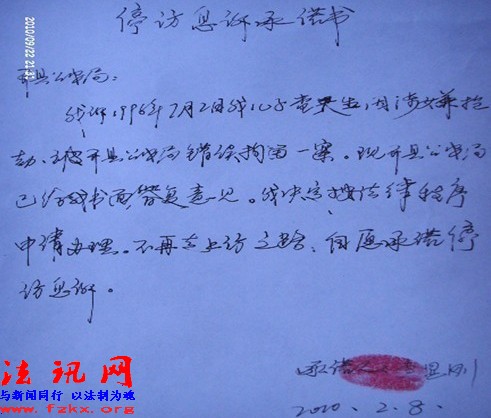 2010/09/22 21:3
停访息诉承诺书
开县公安局：
我诉1996年7月2日我儿子 生，因涉嫌抢
劫、被开县公安局错误拘留一案。现开县公安局
已给我书面答复意见。我决定按法律程序
申请办理。不再去上访之路、自愿承诺停
访息诉。
承诺人： 思刚
2010.2.8.
法讯网
与新闻同行 以法制为魂
www.fzkx.org